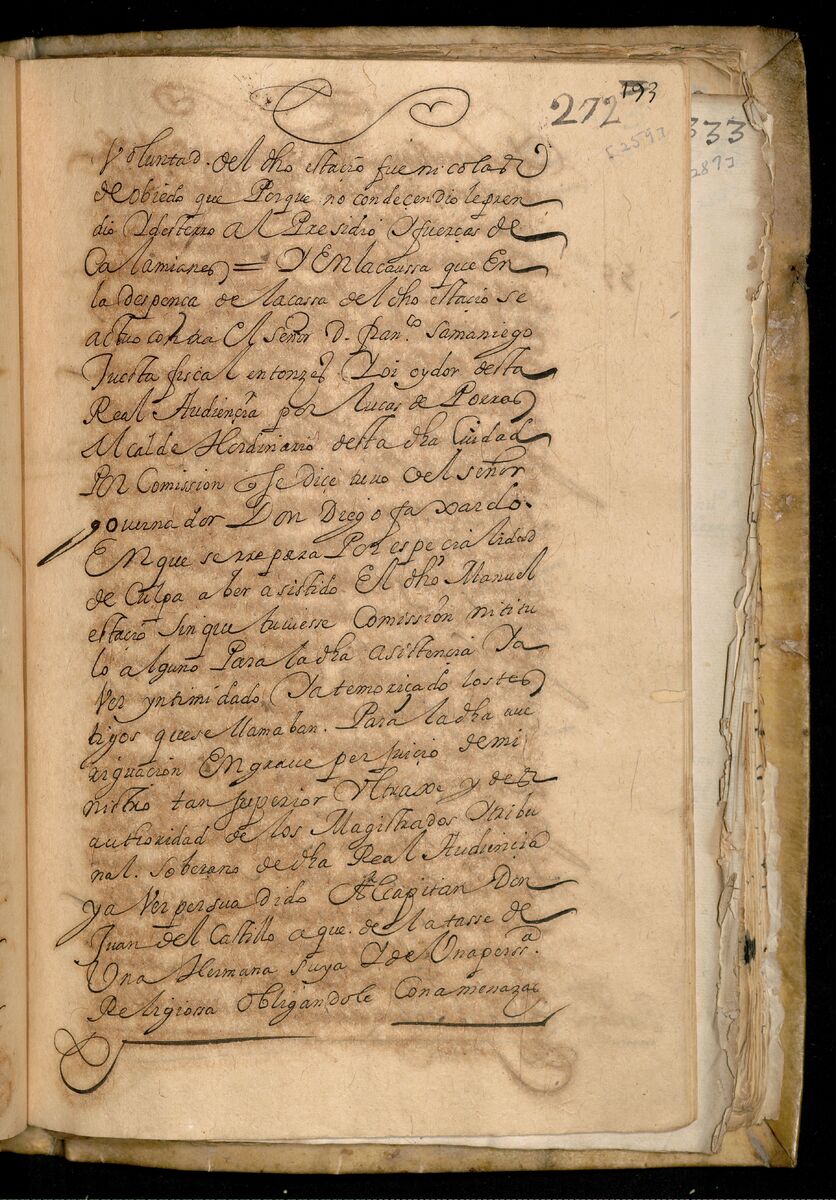 272 193
f 2593
333
2873
Voluntad. del dho estacio fue nicolas
de obiedo que Porque no condecendio le pren
dio Y desterro al Presidio Y fuerças de
Calamianes = Y En la caussa que En
la despença de la cassa del dho estacio se
actuo contra El señor D. franco. Samaniego
Tuesta fiscal entonzes Y oi oydor desta
Real Audiençia por lucas de Porras
Alcalde Hordinario desta dha Ciudad
Por Comission q se diçe tuuo del señor
gouernador Don Diego faxardo.
En que se rrepara Por especialidad
de Culpa aber asistido El dho Manuel
estacio sin que tuuiesse Comission ni titu
lo alguno Para la dha asistencia Ya
Ver yntimidado Y atemoriçado los tes
tigos que se llamaban. Para la dha aue
riguaçion En graue perjuiçio de mi
nistro tan superior Vltraxe y des
authoridad de los Magistrados Y tribu
nal. Soberano de dha Real Audiencia
ya Ver persuadido Al Capitan Don
Juan del Castillo a que. delatasse de
Una Hermana suya Y de Una perssa.
Religiossa obligandole Con amenazas